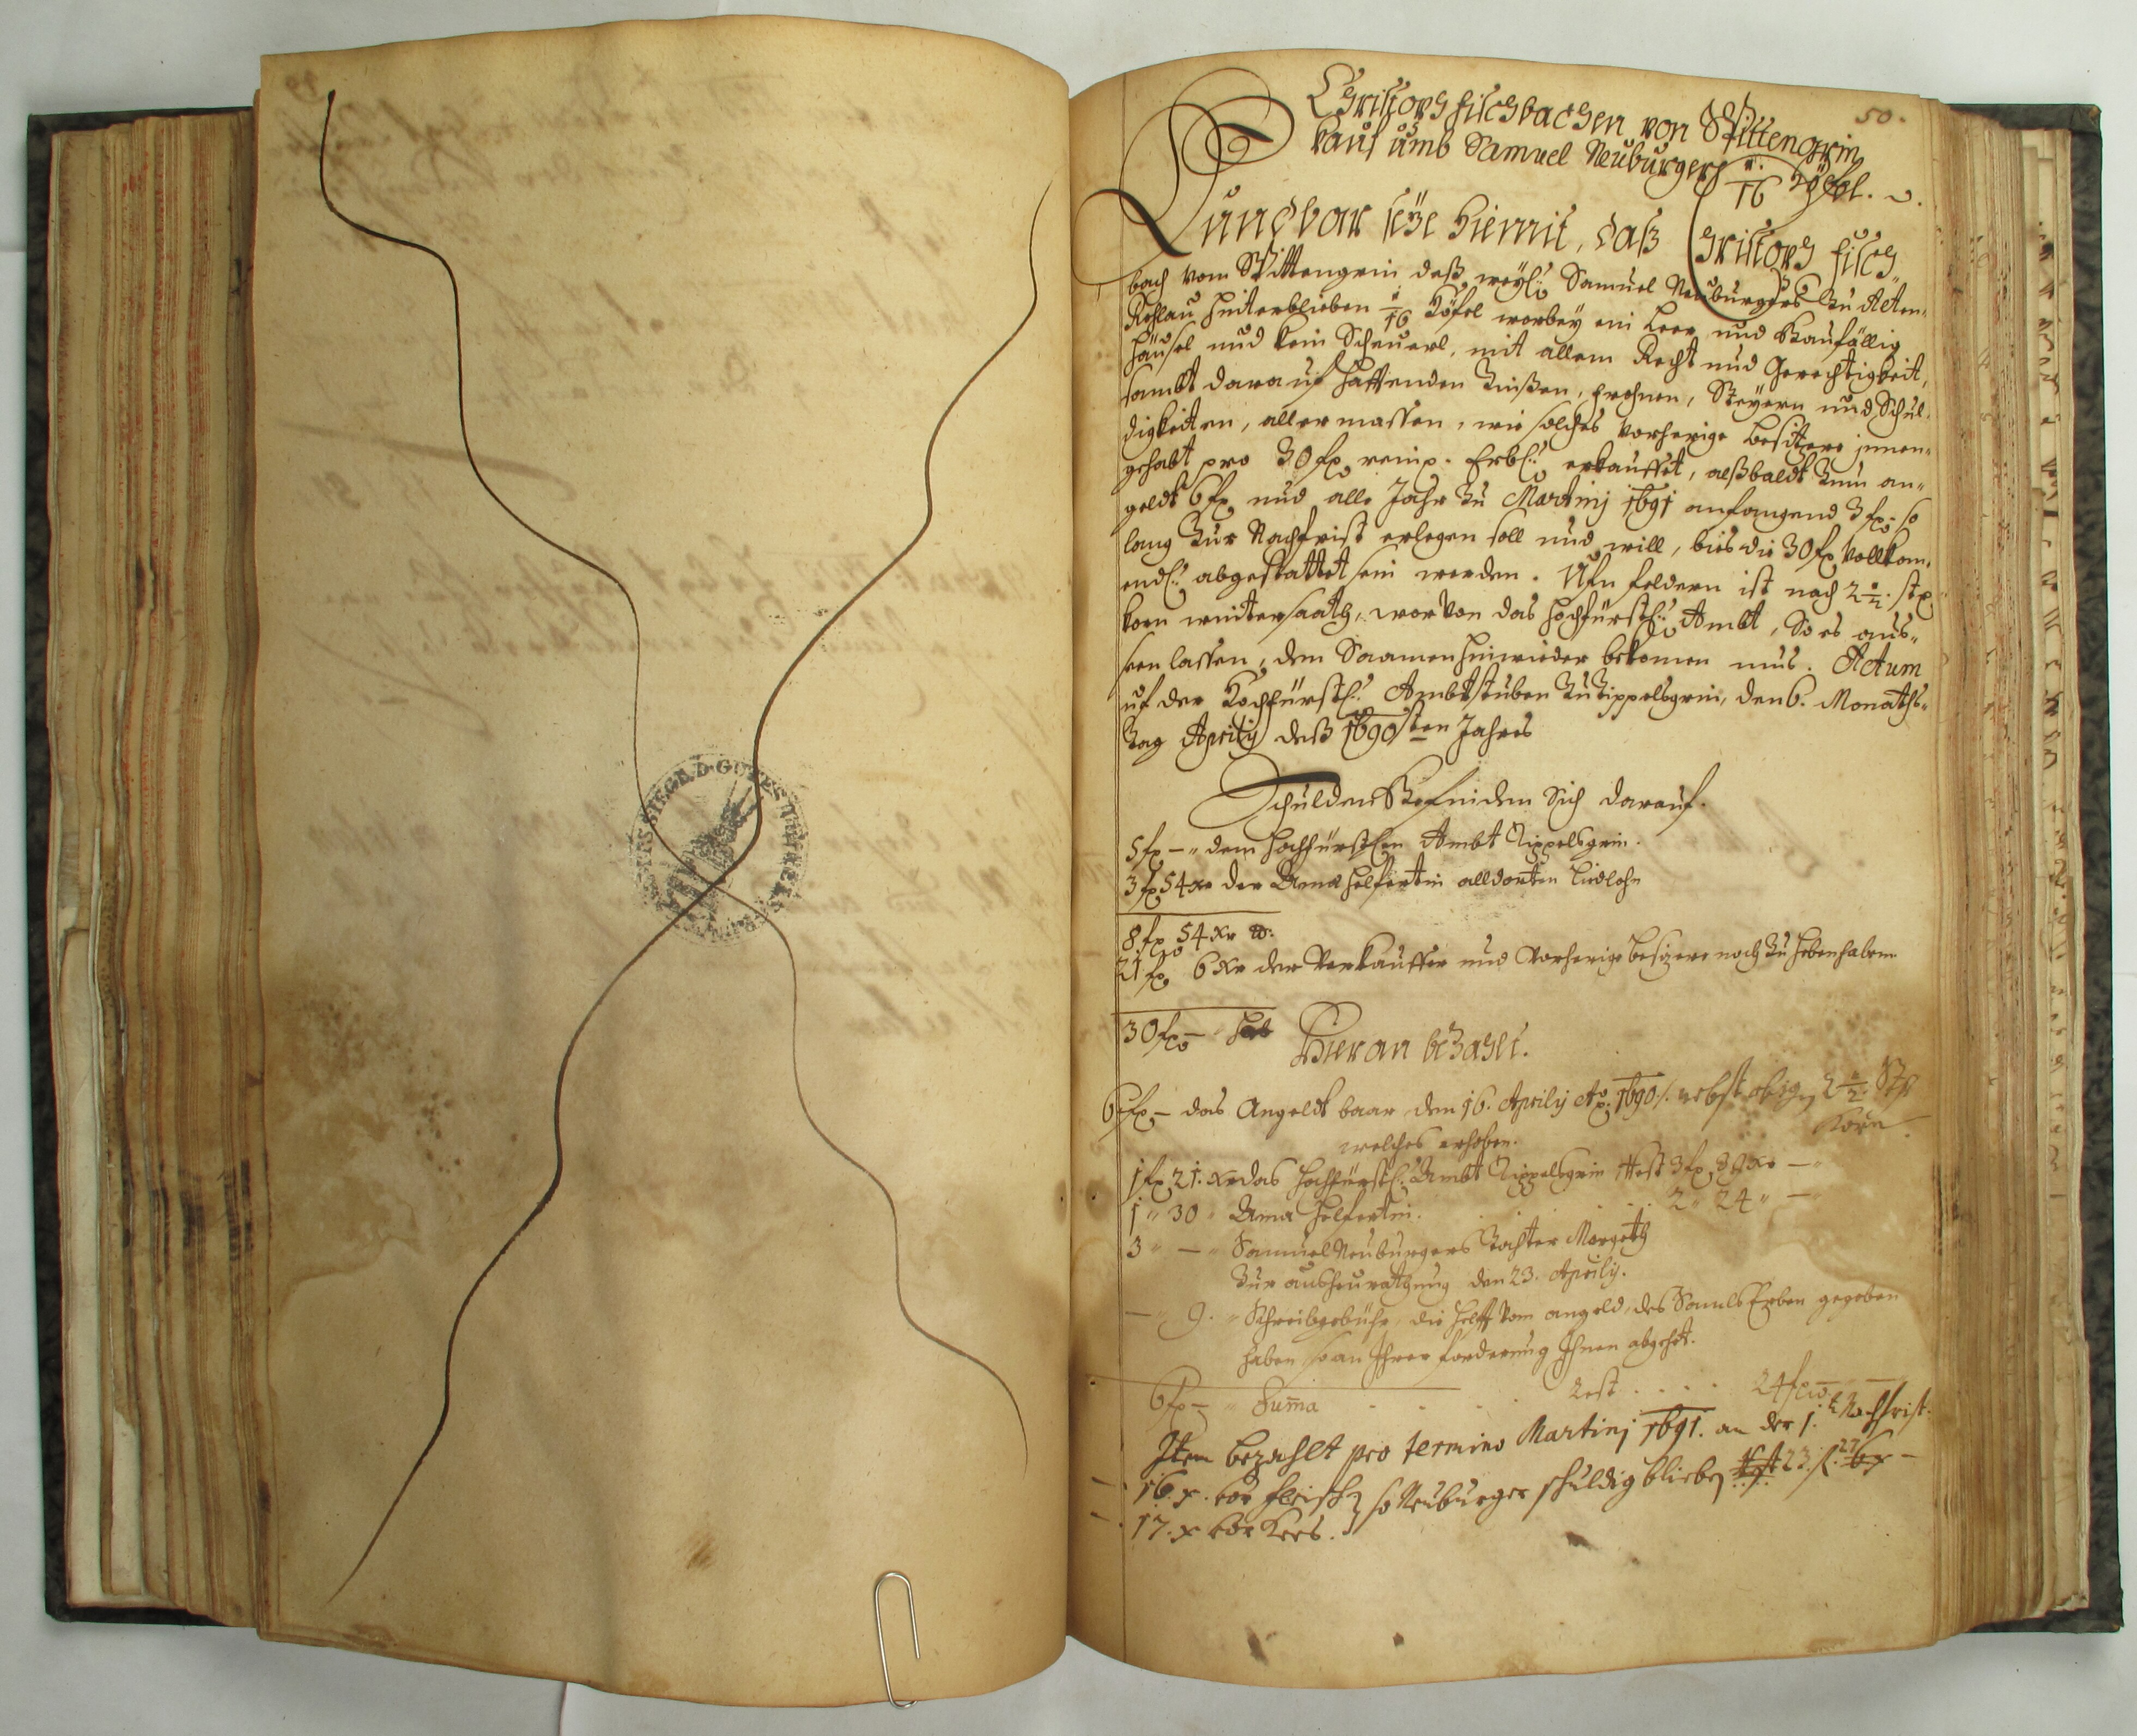 50.
Christoph Fischbachen von Spittengrün
Kauf umb Samuel Neuburgers 1/16 Höfel.
Kundbar seye hiemit, daß Christoph Fisch-
bach vom Spittengrin deß weyl: Samuel Neuburgers zu Alten-
Rohlau hinterblieben 1/16 Höfel worbey ein Leer und Baufällig
häusel und kein Scheuerl, mit allem Recht und Gerechtigkeit,
sambt darauf hafftenden Zinßen, frohnen, Steyern und Schul-
digkeiten, allermassen, wie solches vorherige besitzere jnnen-
gehabt pro 30 fl reinp. Erbl: erkaufft, alßbaldt Zum an-
geldt 6 fl und alle Jahr zu Martinj 1691 anfangend 3 fl so
lang Zur Nachfrist erlegen soll und will, bies die 30 fl vollkom-
endl: abgestattet sein werden. Ufn feldern ist nach 2 1/2 str
korn wintersaath, worvon das hochfürstl: Ambt, So es aus-
seen lassen, den Saamen hinwieder bekomen mus. Actum
uf der Hochfürstl: Ambtstuben Zu Tippelsgrin, den 6. Monaths-
Tag Aprily deß 1690sten Jahres
Schulden Befinden Sich darauf.
5 fl — " dem hochfürstlen Ambt Tippelsgrin.
3 fl 54 xr der Anna Helfertin alldorten Liedlohn
8 fl 54 xr
21 fl 6 xr der Verkauffer und vorherige besizere noch Zu heben haben
30 fl —
Hieran bezahlt.
6 fl — das Angeldt baar den 16. Aprily Ao. 1690 /. nebst obig 2 1/2 Str
Korn
welches erhoben.
1 fl 21. xr das hochfürstl: Ambt Tippelsgrin Rest 3 fl 39 xr —
1 " 30 " Anna Helfertin. . . . 2 " 24 " —
3 " — " Samuel Neuburgers Tochter Margeth
Zur ausheurathung den 23. Aprily.
— " 9. " Schreibgebühr, die helfft vom angeld, des Samls Erben gegeben
haben so an Ihrer forderung Ihnen abgehet.
6 fl — " Suma . . . Rest . . . . 24 fl —
Item bezahlt pro termino Martinj 1691. an der 1. Nachfrist.
— 16. x. vor fleisch so Neuburger schuldig blieben 23. f. 27 x —
— 17. x vor Kees.